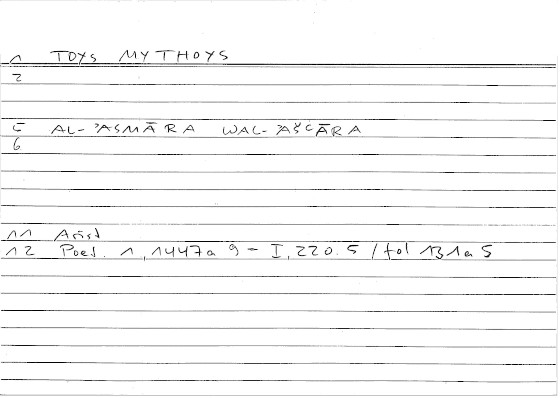 1 TOYS MYTHOYS
2
5 AL-ʾASMĀRA WAL-ʾAŠʿĀRA
6
11 Arist
12 Poet. 1, 1447a 9 - I, 220.5 / fol 131a5